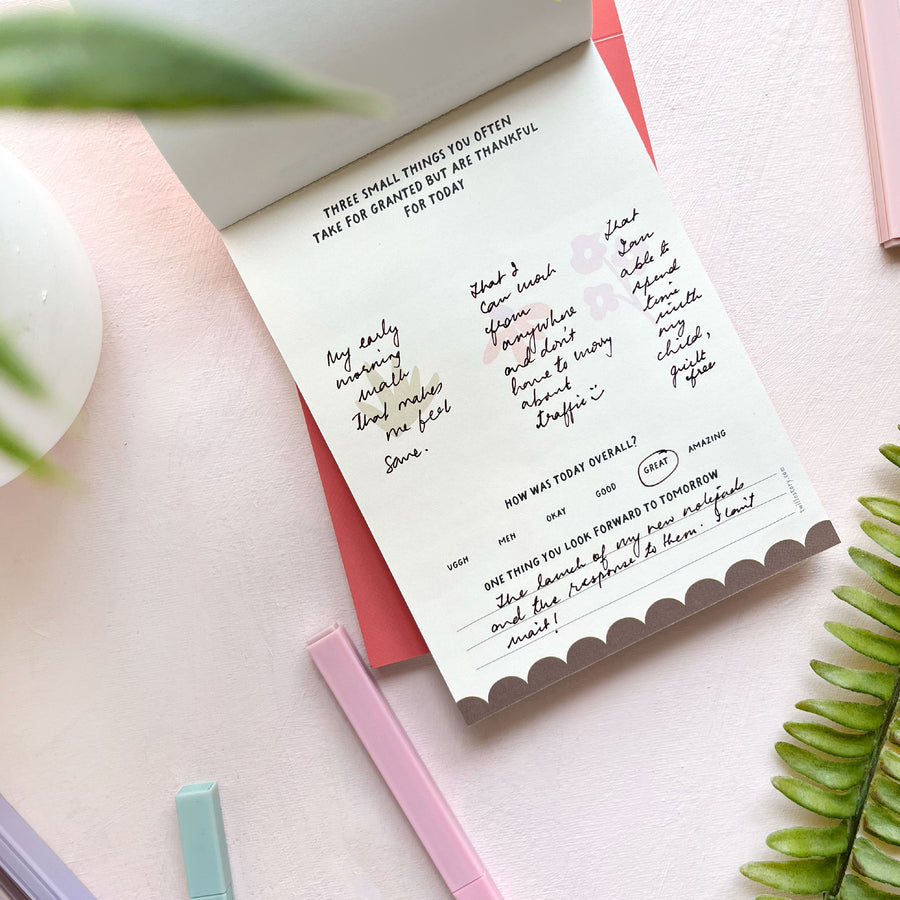 THREE SMALL THINGS YOU OFTEN
TAKE FOR GRANTED BUT ARE THANKFUL
FOR TODAY
My early
morning
walk
that makes
me feel
sane.
that I
can work
from
anywhere
and don't
have to worry
about
traffic :)
that
I am
able to
spend
time
with
my
child,
guilt
free
HOW WAS TODAY OVERALL?
UGGH MEH OKAY GOOD GREAT AMAZING
ONE THING YOU LOOK FORWARD TO TOMORROW
The launch of my new notepads
and the response to them. I can't
wait!